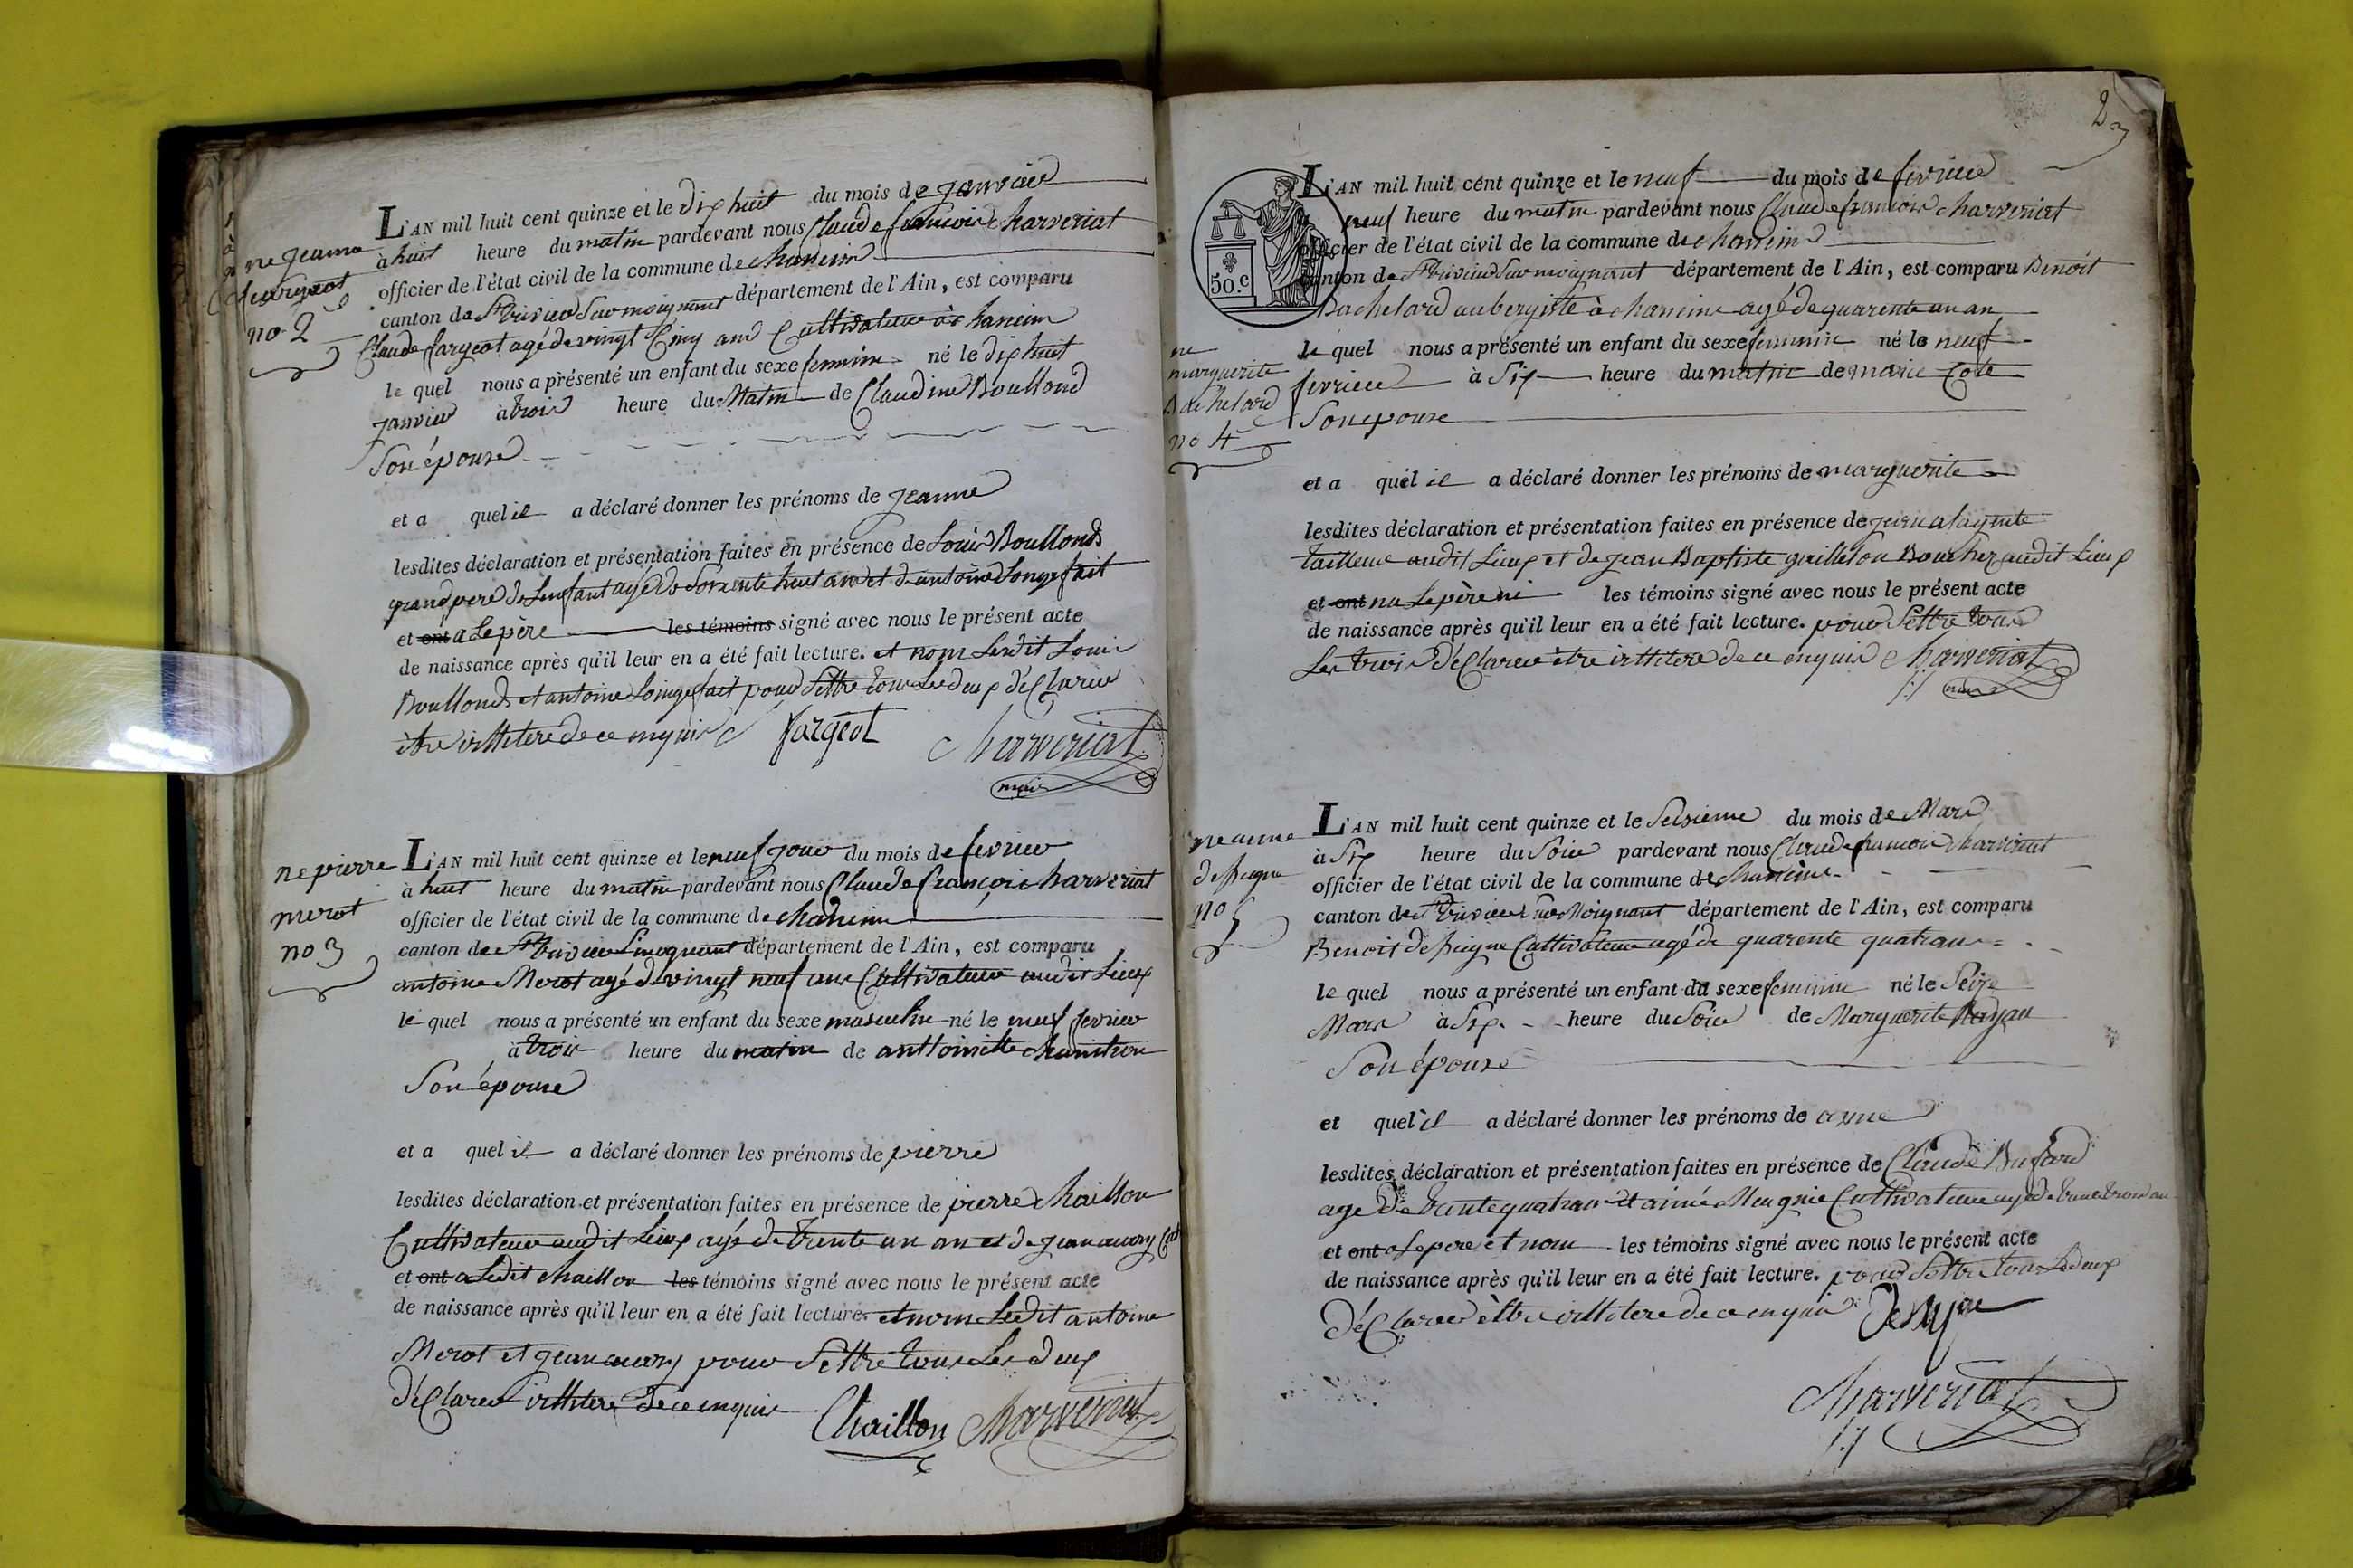 ne jeanne
fargeot
no 2
L'AN mil huit cent quinze et le dix huit du mois de janvier
à huit heure du matin pardevant nous Claude françois charveriat
officier de l'état civil de la commune de chaneins
canton de St trivier Sur moignant département de l'Ain, est comparu
Claude fargeot agé de vingt Cinq ans Cultivateur à chaneins
le quel nous a présenté un enfant du sexe feminin né le dix huit
janvier à trois heure du Matin de Claudine Boullond
Son épouse
et a quel il a déclaré donner les prénoms de jeanne
lesdites déclaration et présentation faites en présence de Louis Boullond
grand pere de Lenfant agé de Soixente huit ans et de antoine Longefait
et ont a Le père les témoins signé avec nous le présent acte
de naissance après qu'il leur en a été fait lecture. et nom Ledit Louis
Boullond et antoine Loingefait pour Settre tous Les deux déClarer
être illitere de ce enquis fargeot charveriat
maire
ne pierre
merot
no 3
L'AN mil huit cent quinze et le neuf jour du mois de fevrier
à huit heure du matin pardevant nous Claude françois charveriat
officier de l'état civil de la commune de chaneins
canton de St trivier Sur mognant département de l'Ain, est comparu
antoine Merot agé de vingt neuf ans Cultivateur audit Lieux
le quel nous a présenté un enfant du sexe masculin né le neuf fevrier
à trois heure du matin de anttoinette
Son épouse
et a quel il a déclaré donner les prénoms de pierre
lesdites déclaration et présentation faites en présence de pierre chaillon
Cultivateur audit Lieux agé de trente un an et de jean
et ont a Ledit chaillon les témoins signé avec nous le présent acte
de naissance après qu'il leur en a été fait lecture. et nom Ledit antoine
Merot et jean pour Settre tous Les deux
déClarer illitere de ce enquis Chaillon charveriat
2
50.c
ne
marguerite
Bachelard
no 4
L'AN mil huit cent quinze et le neuf du mois de fevrier
à neuf heure du matin pardevant nous Claude francois charveriat
officier de l'état civil de la commune de chaneins
canton de St trivier Sur moignant département de l'Ain, est comparu Benoit
Bachelard aubergiste à chaneins agé de quarente un an
le quel nous a présenté un enfant du sexe feminin né le neuf
fevrier à Six heure du matin de marie Cote
Son epouse
et a quel il a déclaré donner les prénoms de marguerite
lesdites déclaration et présentation faites en présence de
tailleur audit Lieux et de jean Baptiste guilleton Boucher audit Lieux
et ont na Le père ni les témoins signé avec nous le présent acte
de naissance après qu'il leur en a été fait lecture. pour Settre tous
Les trois déClarer être illitere de ce enquis charveriat
maire
ne anne
no 5
L'AN mil huit cent quinze et le Seisieme du mois de Mars
à Six heure du Soir pardevant nous Claude francois charveriat
officier de l'état civil de la commune de chaneins
canton de St trivier Sur Moignant département de l'Ain, est comparu
Benoit Cultivateur agé de quarente quatr ans
le quel nous a présenté un enfant du sexe feminin né le Seize
Mars à Six heure du Soir de Marguerite
Son épouse
et quel il a déclaré donner les prénoms de anne
lesdites déclaration et présentation faites en présence de Claude
agé de trente quatr ans et aimé Cultivateur agé de trente trois an
et ont a Le pere et nom les témoins signé avec nous le présent acte
de naissance après qu'il leur en a été fait lecture. pour Settre tous Les deux
déClarer être illitere de ce enquis
charveriat